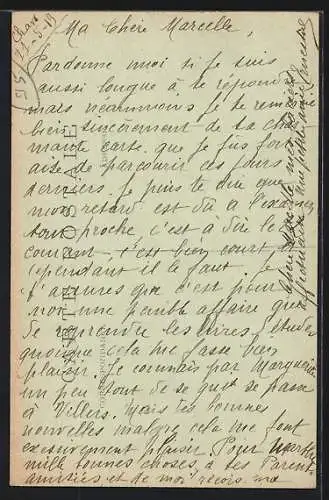 Ma Chère Marcelle,
Pardonne moi si je suis
aussi longue à te répondre
mais néanmoins je te remercie
bien sincèrement de ta char
mante carte que je fus fort
aise de parcourir ces jours
derniers. Je puis te dire que
mon retard est dû à l'examen
tout proche, c'est à dire le
courant, c'est bien court,
cependant il le faut. Je
t'assures que c'est pour
moi une pénible affaire que
de reprendre les livres d'étude
quoique cela me fasse bien
plaisir. Je connais par Marguerite
un peu tout de ce qui se passe
à Villers. Mais tes bonnes
nouvelles malgré cela me font
excessivement plaisir. Pour Marthe
mille bonnes choses, à tes Parents
amitiés et de moi reçois, ma
chère Marcelle, mes baisers
CARTE POSTALE
CORRESPONDANCE